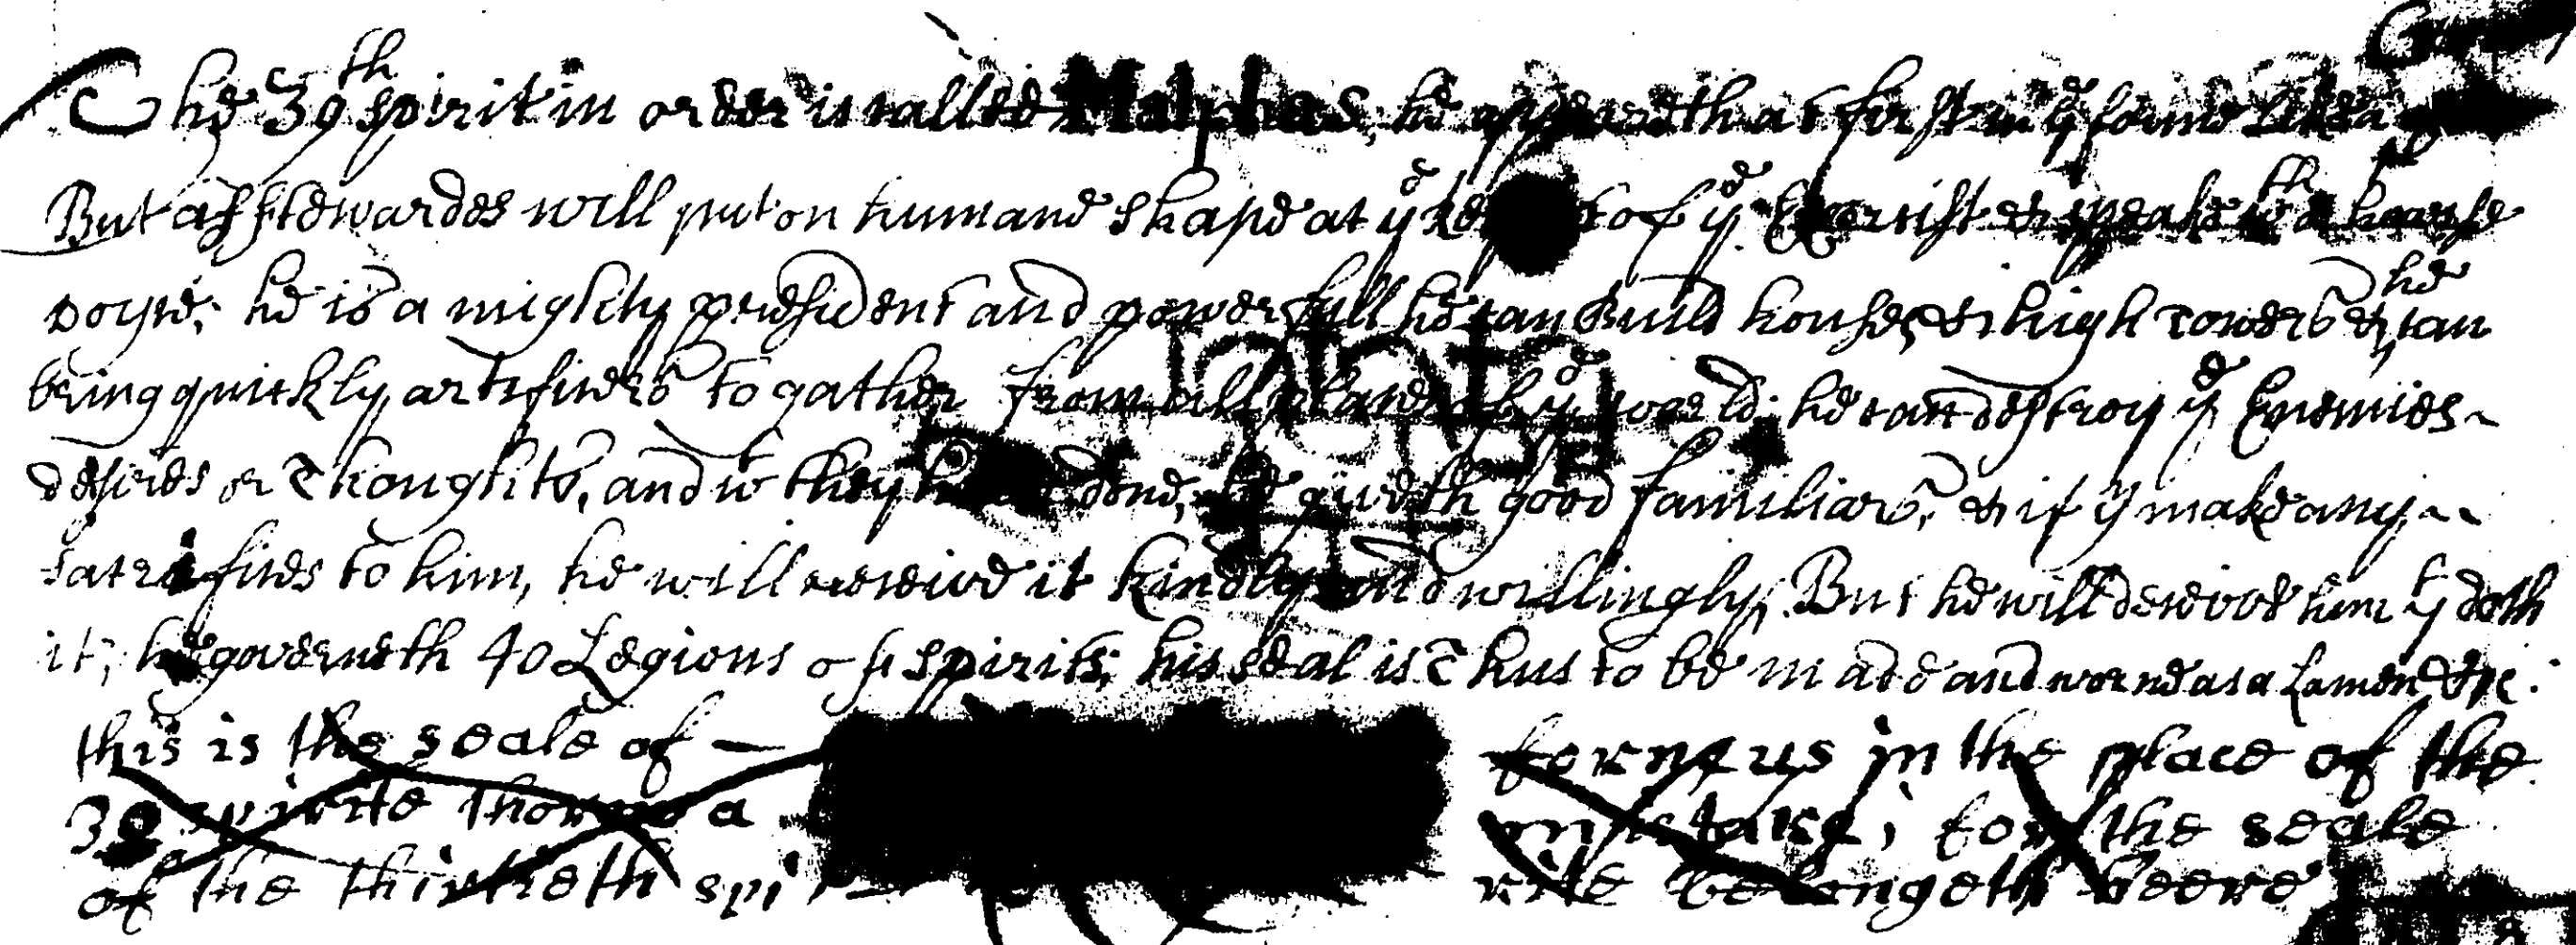 The 39th spirit in order is called Malphas, he appeareth at first in ye forme like a
But affterwardes will put on humane shape at ye of ye Exorcist & speake wth a hoarse
voyce; he is a mighty president and powerfull he can Build houses & high Towers & he can
bring quickly artificers together from all places of ye world; he can destroy ye Enemies
desires or Thoughts, and wt they done, he giveth good familiars, & if y make any
sacrifices to him, he will receive it kindly and willingly, But he will deceive him yt doth
it; he governeth 40 Legions of spirits; his seal is Thus to be made and worne as a Lamen &c:
this is the seale of forneus in the place of the
30 spirite a mistake; for the seale
of the thirtieth spi rite belongeth heere